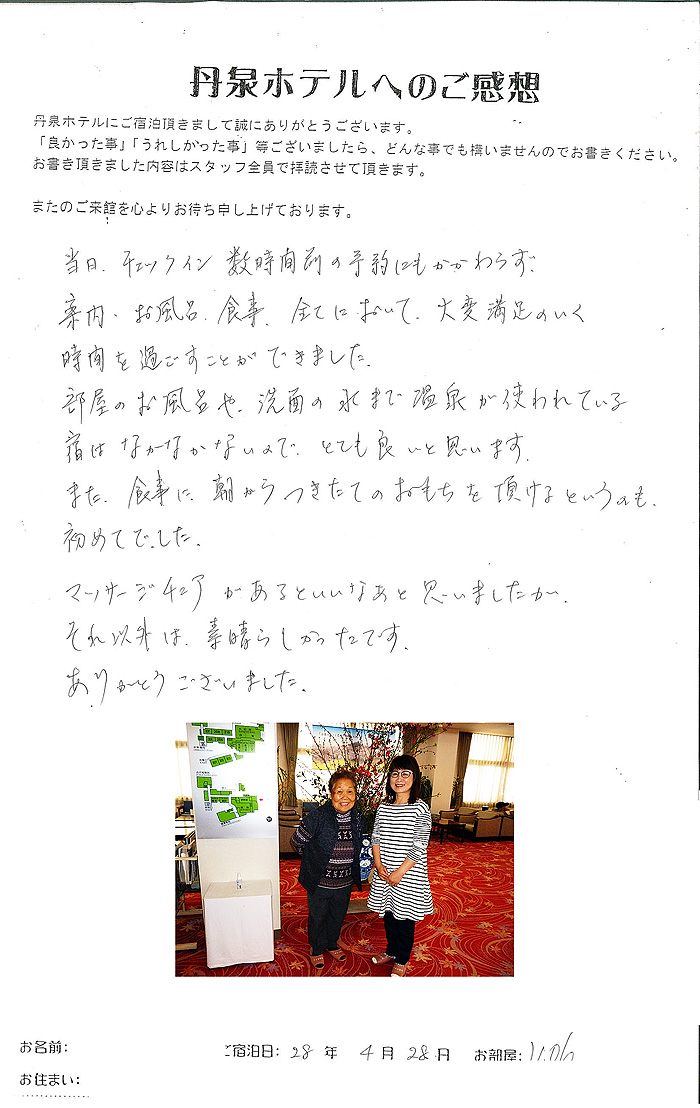 丹泉ホテルへのご感想
丹泉ホテルにご宿泊頂きまして誠にありがとうございます。
「良かった事」「うれしかった事」等ございましたら、どんな事でも構いませんのでお書きください。
お書き頂きました内容はスタッフ全員で拝読させて頂きます。
またのご来館を心よりお待ち申し上げております。
当日、チェックイン数時間前の予約にもかかわらず、
案内、お風呂、食事、全てにおいて、大変満足のいく
時間を過ごすことができました。
部屋のお風呂や、洗面の水まで温泉が使われている
宿はなかなかないので、とても良いと思います。
また、食事に、朝からつきたてのおもちを頂けるというのも、
初めてでした。
マッサージチェアがあるといいなあと思いましたが、
それ以外は、素晴らしかったです。
ありがとうございました。
お名前:
ご宿泊日: 28 年 4 月 28 日 お部屋:
お住まい: